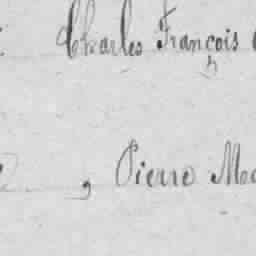 Charles François
, Pierre